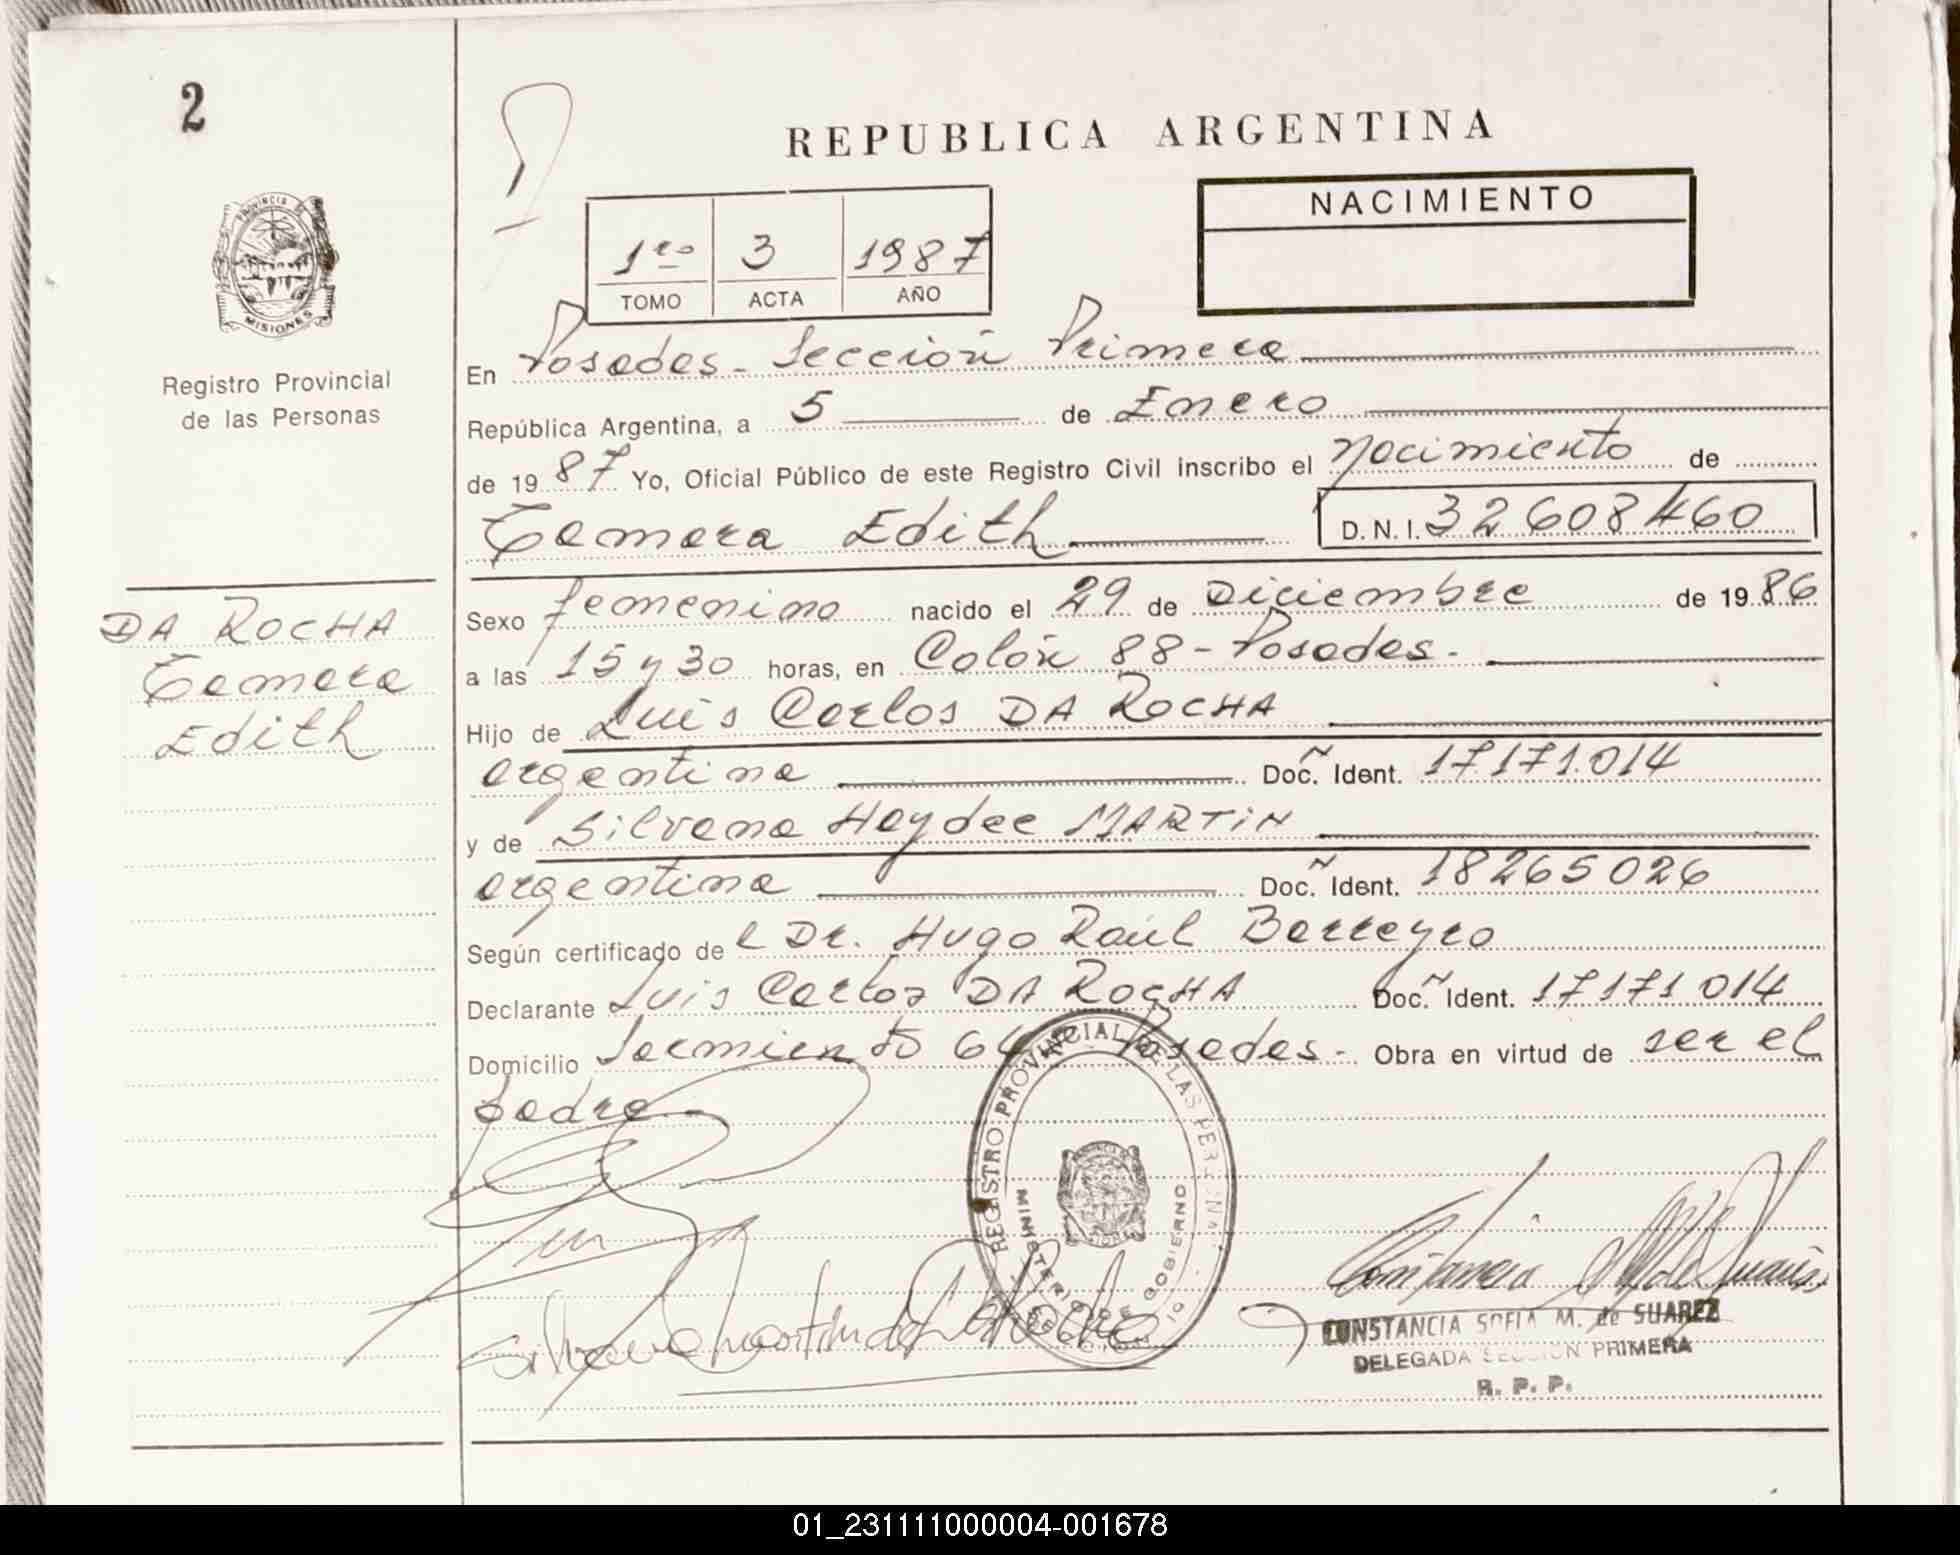 2
REPUBLICA ARGENTINA
PROVINCIA DE
MISIONES
Registro Provincial
de las Personas
1ro 3 1987
TOMO ACTA AÑO
NACIMIENTO
En Posadas - Sección Primera
República Argentina, a 5 de Enero
de 1987 Yo, Oficial Público de este Registro Civil inscribo el nacimiento de
Tamara Edith D.N.I. 32608460
DA ROCHA
Tamara
Edith
Sexo femenino nacido el 29 de Diciembre de 1986
a las 15 y 30 horas, en Colón 88 - Posadas -
Hijo de Luis Carlos DA ROCHA
argentina Doc. Ident. 17.171.014
y de Silvana Haydee MARTIN
argentina Doc. Ident. 18265026
Según certificado de l Dr. Hugo Raúl Barreyro
Declarante Luis Carlos DA ROCHA Doc. Ident. 17171014
Domicilio Sarmiento Posadas - Obra en virtud de ser el
padre
REGISTRO PROVINCIAL DE LAS PERSONAS
MINISTERIO DE GOBIERNO
Silvana Martin de Da Rocha
CONSTANCIA SOFIA M. de SUAREZ
DELEGADA SECCION PRIMERA
R. P. P.
01_231111000004-001678